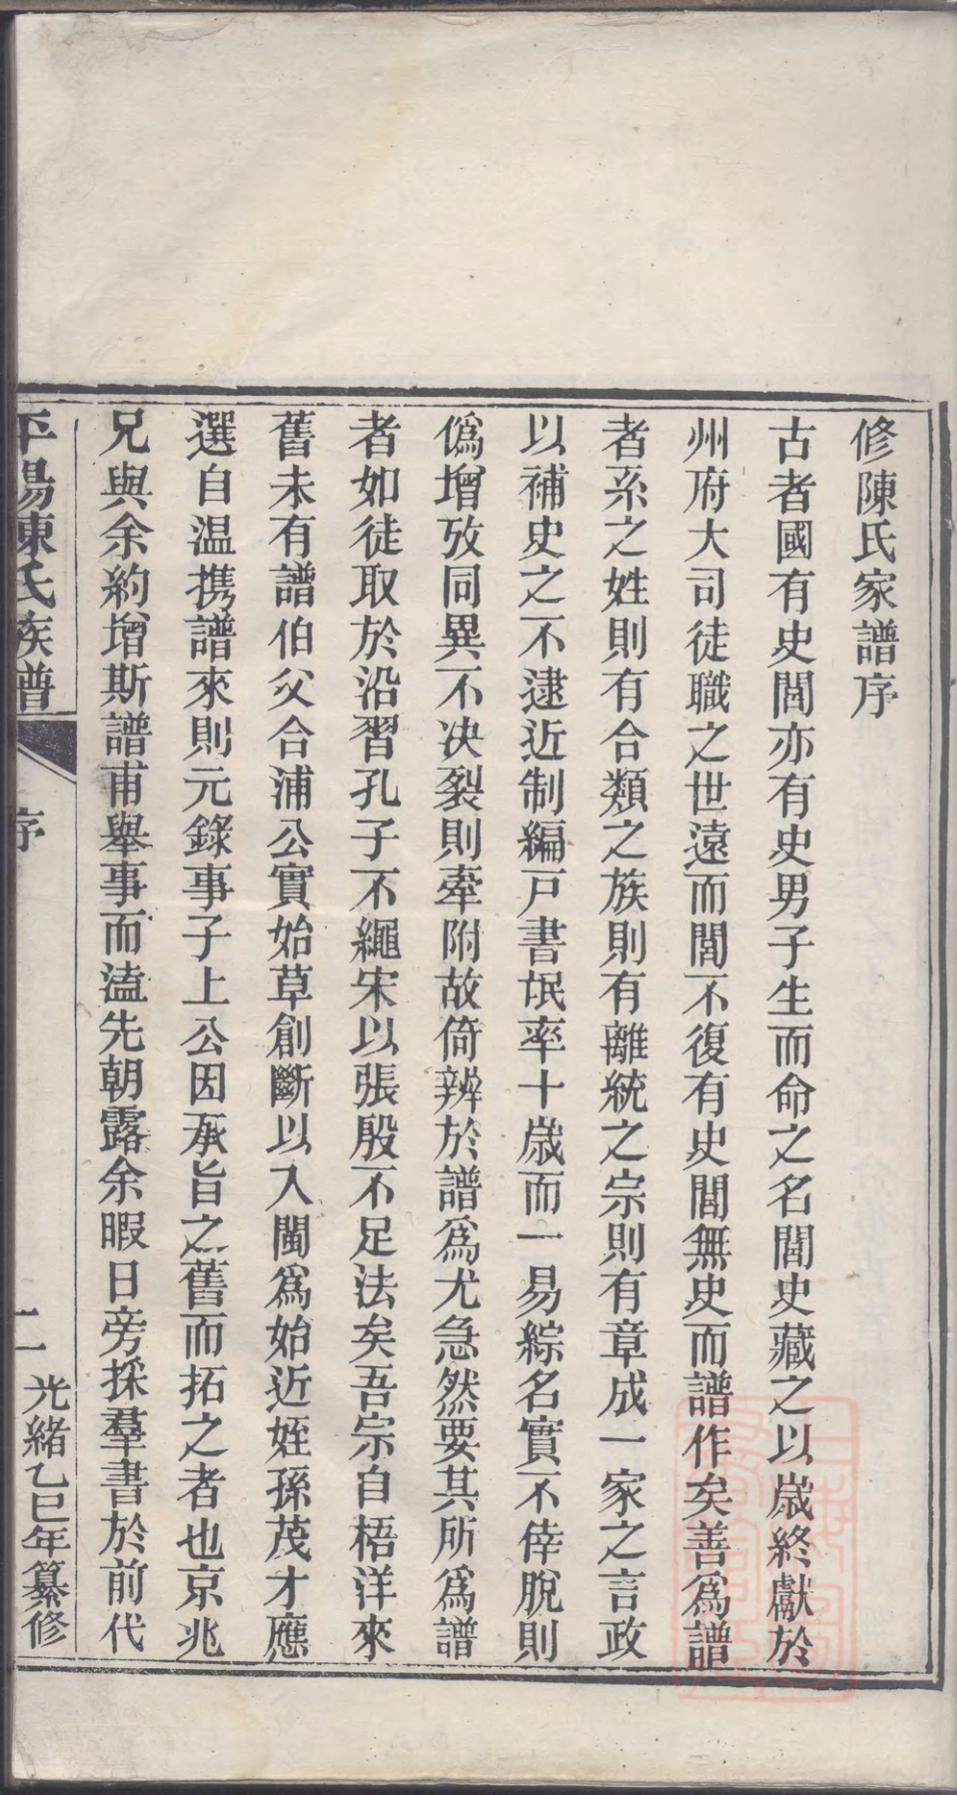 修陳氏家譜序
古者國有史閭亦有史男子生而命之名閭史藏之以歲終獻於
州府大司徒職之世遠而閭不復有史閭無史而譜作矣善爲譜
者系之姓則有合類之族則有離統之宗則有章成一家之言政
以補史之不逮近制編戸書氓率十歲而一易綜名實不倖脫則
僞增攷同異不决裂則牽附故倚辨於譜爲尤急然要其所爲譜
者如徒取於沿習孔子不繩宋以張殷不足法矣吾宗自梧洋來
舊未有譜伯父合浦公實始草創斷以入閩爲始近姪孫茂才應
選自温携譜來則元錄事子上公因承旨之舊而拓之者也京兆
兄與余約增斯譜甫舉事而溘先朝露余暇日旁採羣書於前代
平陽陳氏族譜
序
二
光緒乙巳年纂修